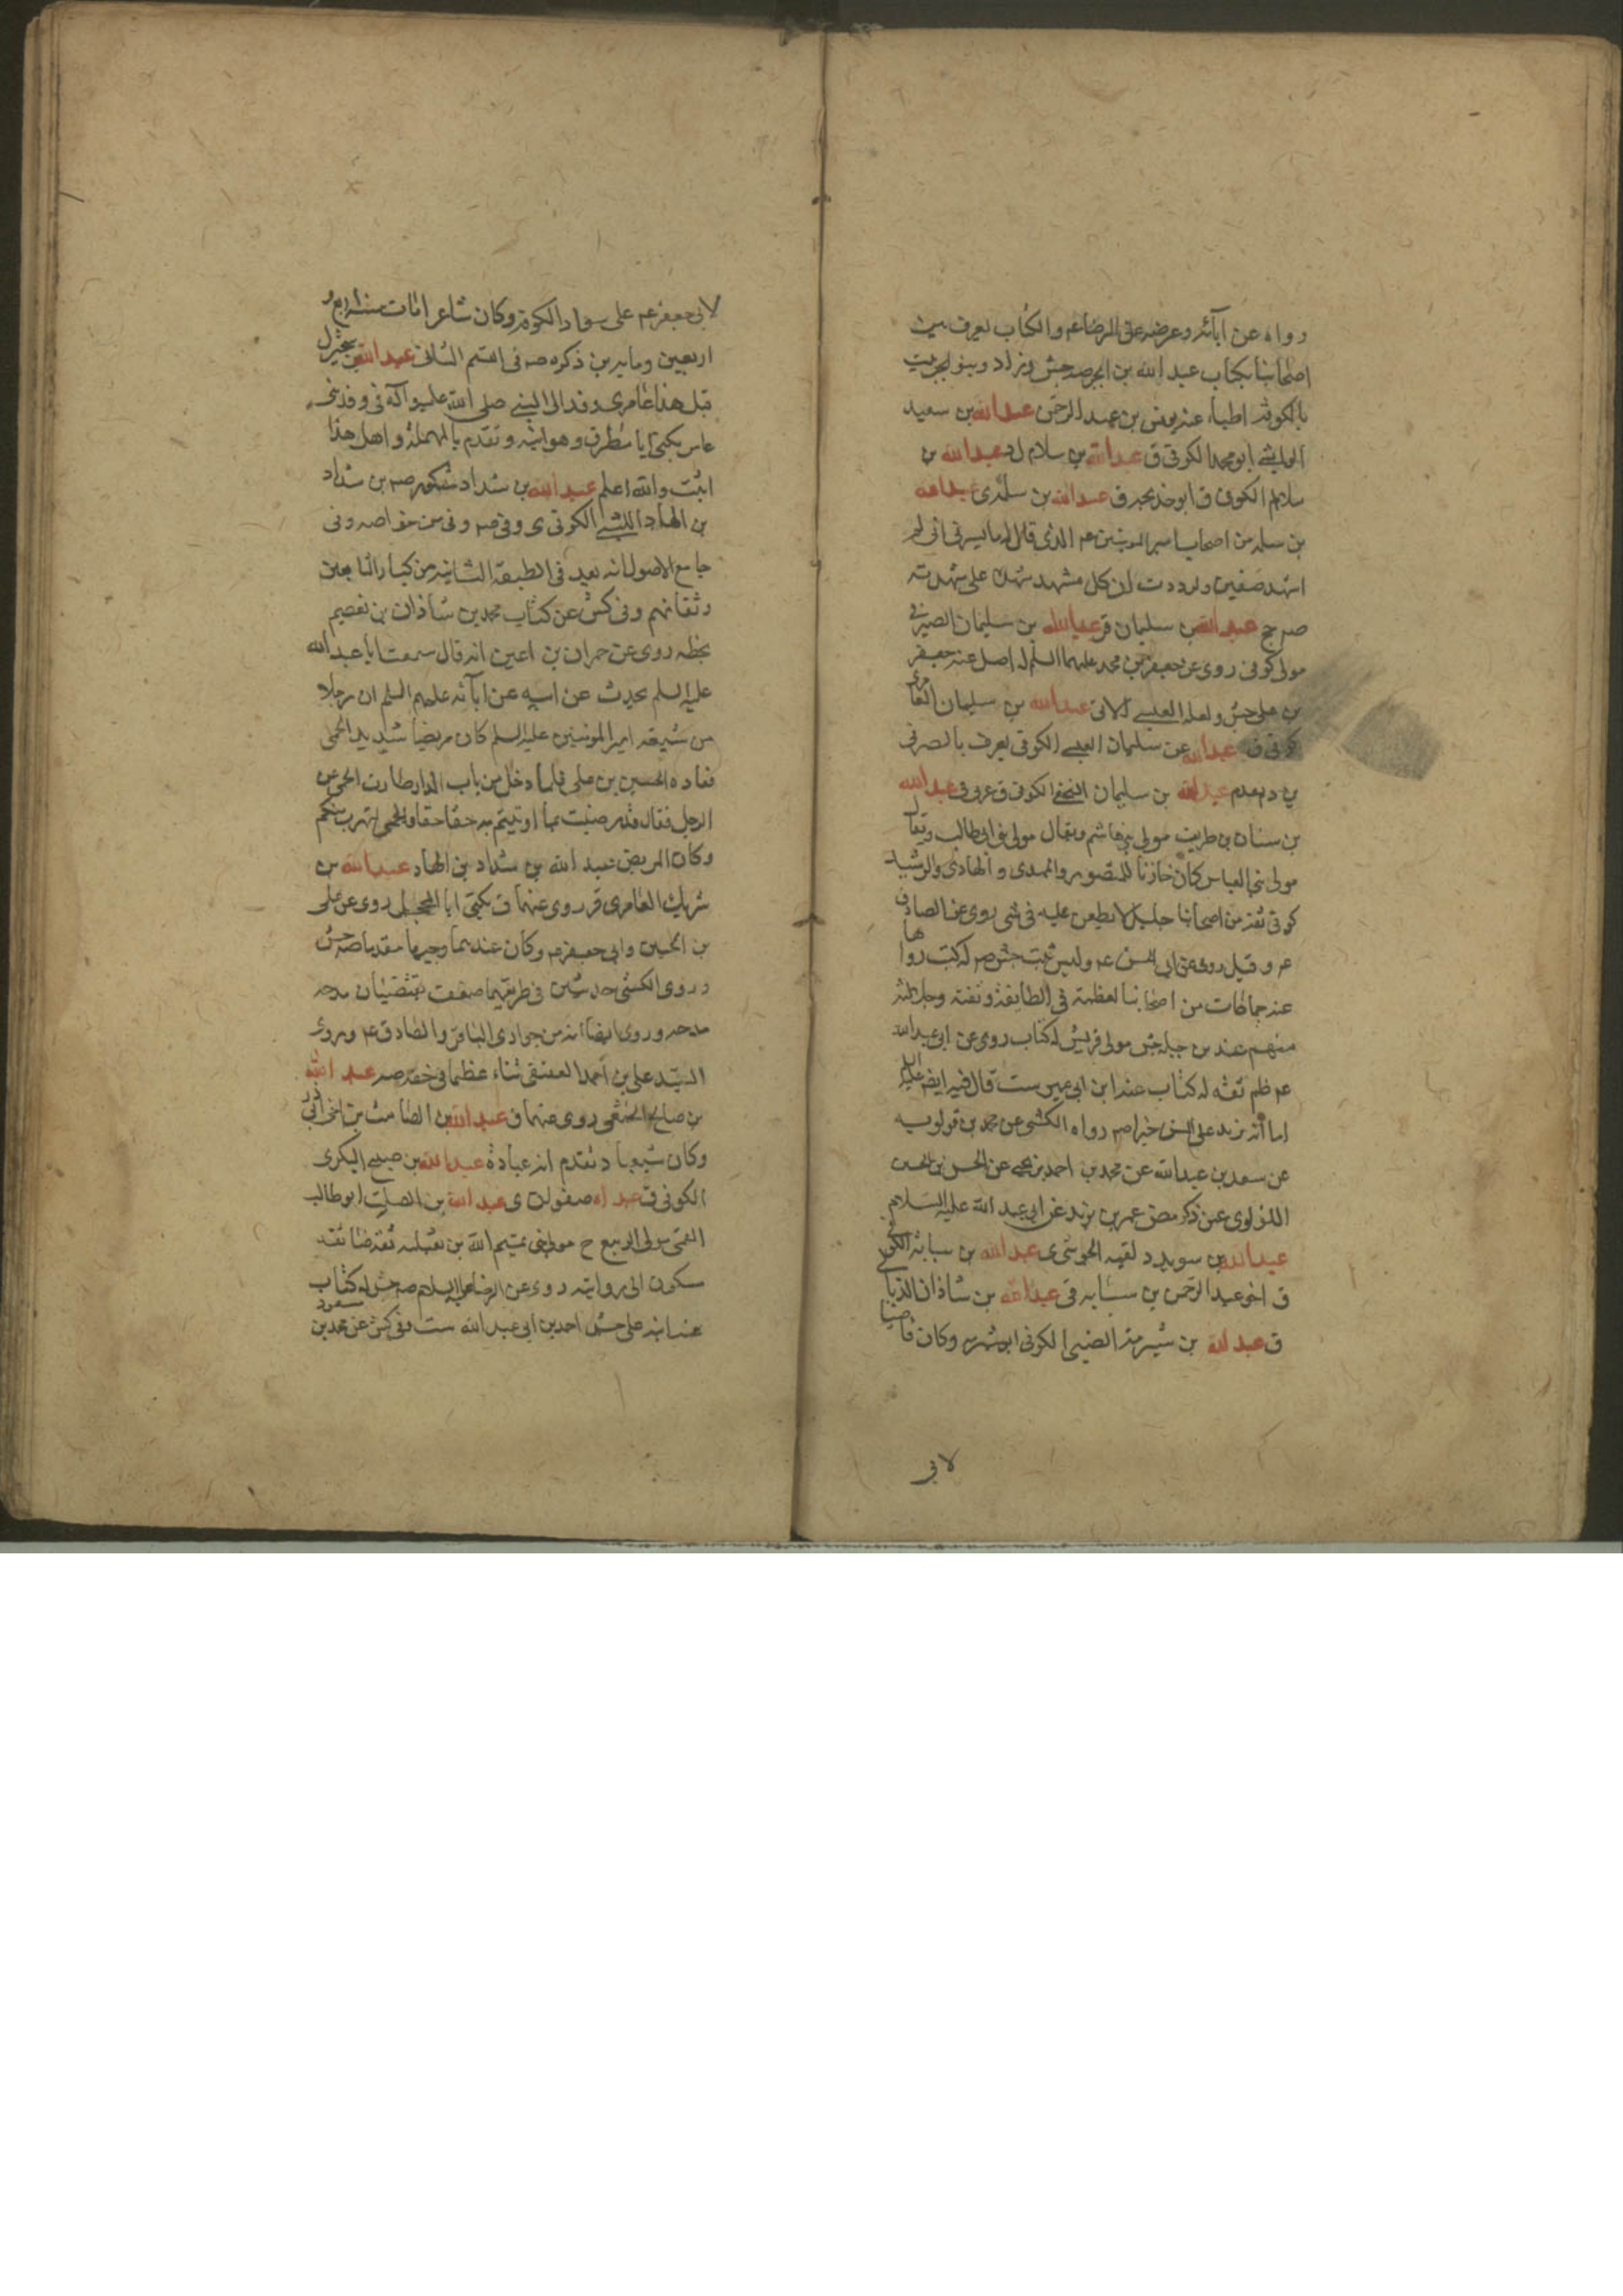 رواه عن آبائه وعرضه على الرضا عم والكتاب يعرف بين
اصحابنا بكتاب عبد الله بن ابجر صه جش وزاد وبنو ابجر بيت
بالكوفة اطباء عنه يونس بن عبد الرحمن عبد الله بن سعيد
الوابشي ابو محمد الكوفي ق عبد الله بن سلام ل د عبد الله بن
سلام الكوفي ق ابو خديجة ق عبد الله بن سلمة ى عبد الله
بن سلمة من اصحاب امير المومنين عم الذي قال له ما يسرني اني لم
اشهد صفين ولوددت ان كل مشهد شهد على شهدته
صه جخ عبد الله بن سليمان قر عبد الله بن سليمان الصيرفي
مولى كوفي روى عن جعفر بن محمد عليهما السلم له اصل عنه جعفر
بن علي جش ولعله العبسي الاتي عبد الله بن سليمان العامري
كوفي ق عبد الله بن سليمان العبسي الكوفي يعرف بالصيرفي
ق وتقدم عبد الله بن سليمان النخعي الكوفي ق عربي ق عبد الله
بن سنان بن طريف مولى بني هاشم ويقال مولى بني ابي طالب ويقال
مولى بني العباس كان خازنا للمنصور والمهدي والهادي والرشيد
كوفي ثقة من اصحابنا جليل لا يطعن عليه في شي روى عن الصادق
عم وقيل روى عن ابي الحسن عم وليس بثبت جش صه له كتب رواها
عنه جماعات من اصحابنا لعظمته في الطايفة وثقته وجلالته
منهم عبد الله بن جبلة جش مولى قريش له كتاب روى عن ابي عبد الله
عم ظم ثقة له كتاب عنه ابن ابي عمير ست قال فيه ايضا عليه السلم
اما انه يزيد على السن خيرا صه رواه الكشي عن محمد بن قولويه
عن سعد بن عبد الله عن محمد بن احمد بن يحيى عن الحسن بن الحسين
اللؤلوي عن ذكره عن عمر بن يزيد عن ابي عبد الله عليه السلام
عبد الله بن سويد د لقبه الحوشى ى عبد الله بن سيابة الكوفي
ق اخو عبد الرحمن بن سيابة ق عبد الله بن شاذان
ق عبد الله بن شبرمة الضبي الكوفي ابو شبرمه وكان قاضيا
لابي
لابي جعفر عم على سواد الكوفة وكان شاعرا مات سنة اربع و
اربعين وماية ين ذكره صه في القسم الثاني عبد الله بن شخير ل
قبل هذا عامرى وفد الى النبي صلى الله عليه وآله في وفد بني
عامر يكنى ابا مطرف وهو ابنه وتقدم بالمهملة واهل هذا
اثبت والله اعلم عبد الله بن شداد مشكور صه بن شداد
بن الهاد الليثي الكوفي ى وفي صه وفي من خواصه وفي
جامع الاصول انه يعد في الطبقة الثانية من كبار التابعين
وثقاتهم وفي كش عن كتاب محمد بن شاذان بن نعيم
بخطه روى عن حمران بن اعين انه قال سمعت ابا عبد الله
عليه السلم يحدث عن ابيه عن آبائه عليهم السلم ان رجلا
من شيعة امير المومنين عليه السلم كان مريضا شديد الحمى
فعاده الحسين بن علي فلما دخل من باب الدار طارت الحمى عن
الرجل فقال قد رضيت بما اوتيتم به حقا حقا والحمى تهرب منكم
وكان المريض عبد الله بن شداد بن الهاد عبد الله بن
شريك العامري قر روى عنهما ق يكنى ابا المحجل روى عن علي
بن الحسين وابي جعفر عم وكان عندهما وجيها مقدما صه جش
د روى الكشي حديثين في طريقهما ضعف يقتضيان مدحه
مدحه وروى ايضا انه من حواري الباقر والصادق ع وروى
السيد علي بن احمد العقيقي ثناء عظيما في حقه صه عبد الله
بن صالح الخثعمي روى عنهما ق عبد الله بن الصامت بن اخي ابي ذر
وكان شيعيا د تقدم انه عبادة عبد الله بن صبيح البكري
الكوفي ق عبد الله صفوان ى عبد الله بن الصلت ابو طالب
القمي مولى الربيع ح مولى بني تيم الله بن ثعلبه ثقة ضا ثقة
مسكون الى روايته روى عن الرضا عليه السلام صه جش له كتاب
عنه ابنه علي جش احمد بن ابي عبد الله ست وفي كش عن محمد بن مسعود